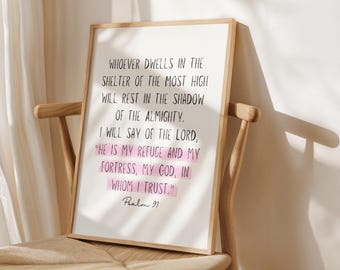 WHOEVER DWELLS IN THE
SHELTER OF THE MOST HIGH
WILL REST IN THE SHADOW
OF THE ALMIGHTY.
I WILL SAY OF THE LORD,
"HE IS MY REFUGE AND MY
FORTRESS, MY GOD, IN
WHOM I TRUST."
Psalm 91